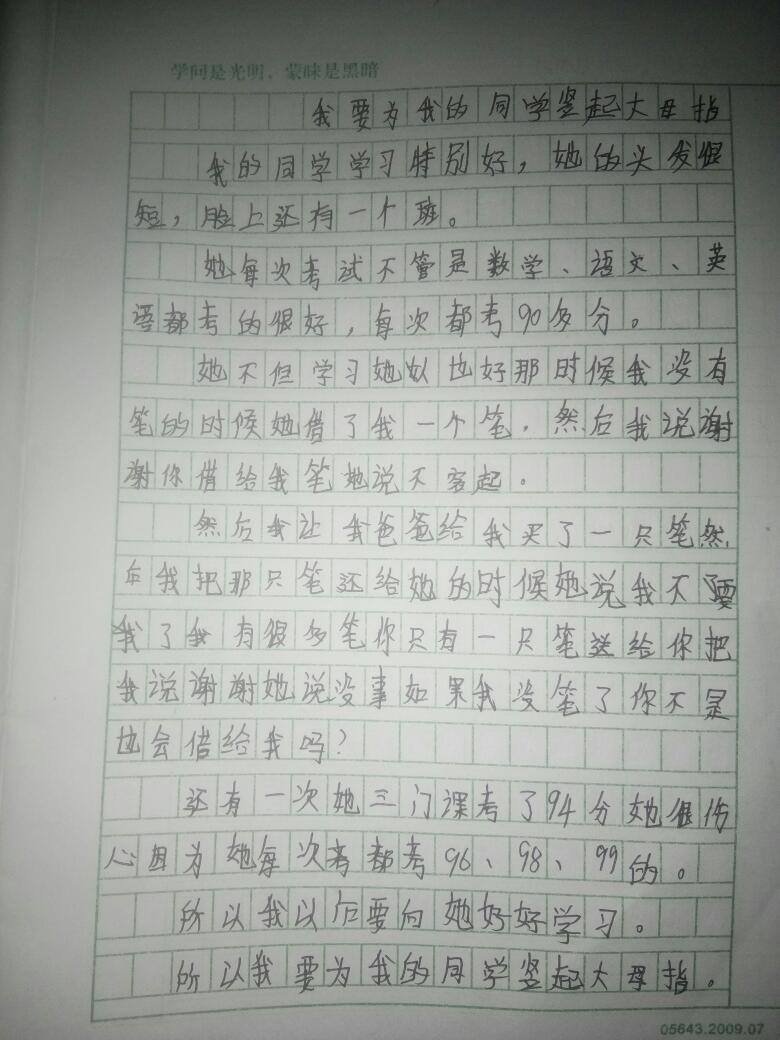 学问是光明，蒙昧是黑暗
我要为我的同学竖起大母指
我的同学学习特别好，她的头发很
短，脸上还有一个斑。
她每次考试不管是数学、语文、英
语都考的很好，每次都考90多分。
她不但学习她以也好那时候我没有
笔的时候她借了我一个笔，然后我说谢
谢你借给我笔她说不客起。
然后我让我爸爸给我买了一只笔然
后我把那只笔还给她的时候她说我不要
我了我有很多笔你只有一只笔送给你把
我说谢谢她说没事如果我没笔了你不是
也会借给我吗？
还有一次她三门课考了94分她很伤
心因为她每次考都考96、98、99的。
所以我以后要向她好好学习。
所以我要为我的同学竖起大母指。
05643.2009.07